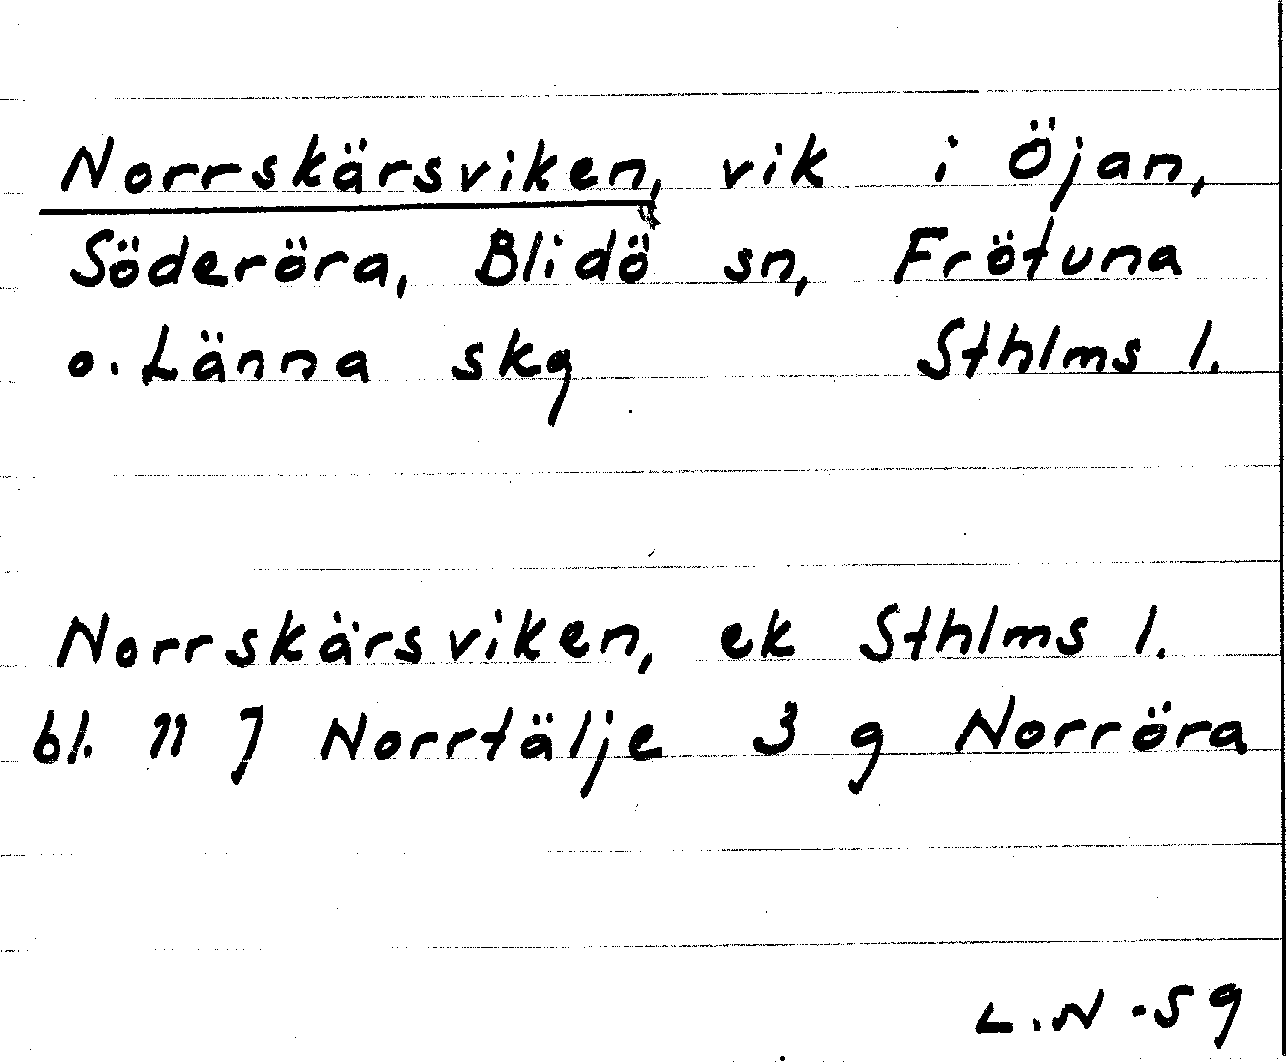 Norrskärsviken, vik i Öjan,
Söderöra, Blidö sn, Frötuna
o. Länna skg Sthlms l.
Norrskärsviken, ek Sthlms l.
bl. 11 J Norrtälje 3 g Norröra
L.N -59